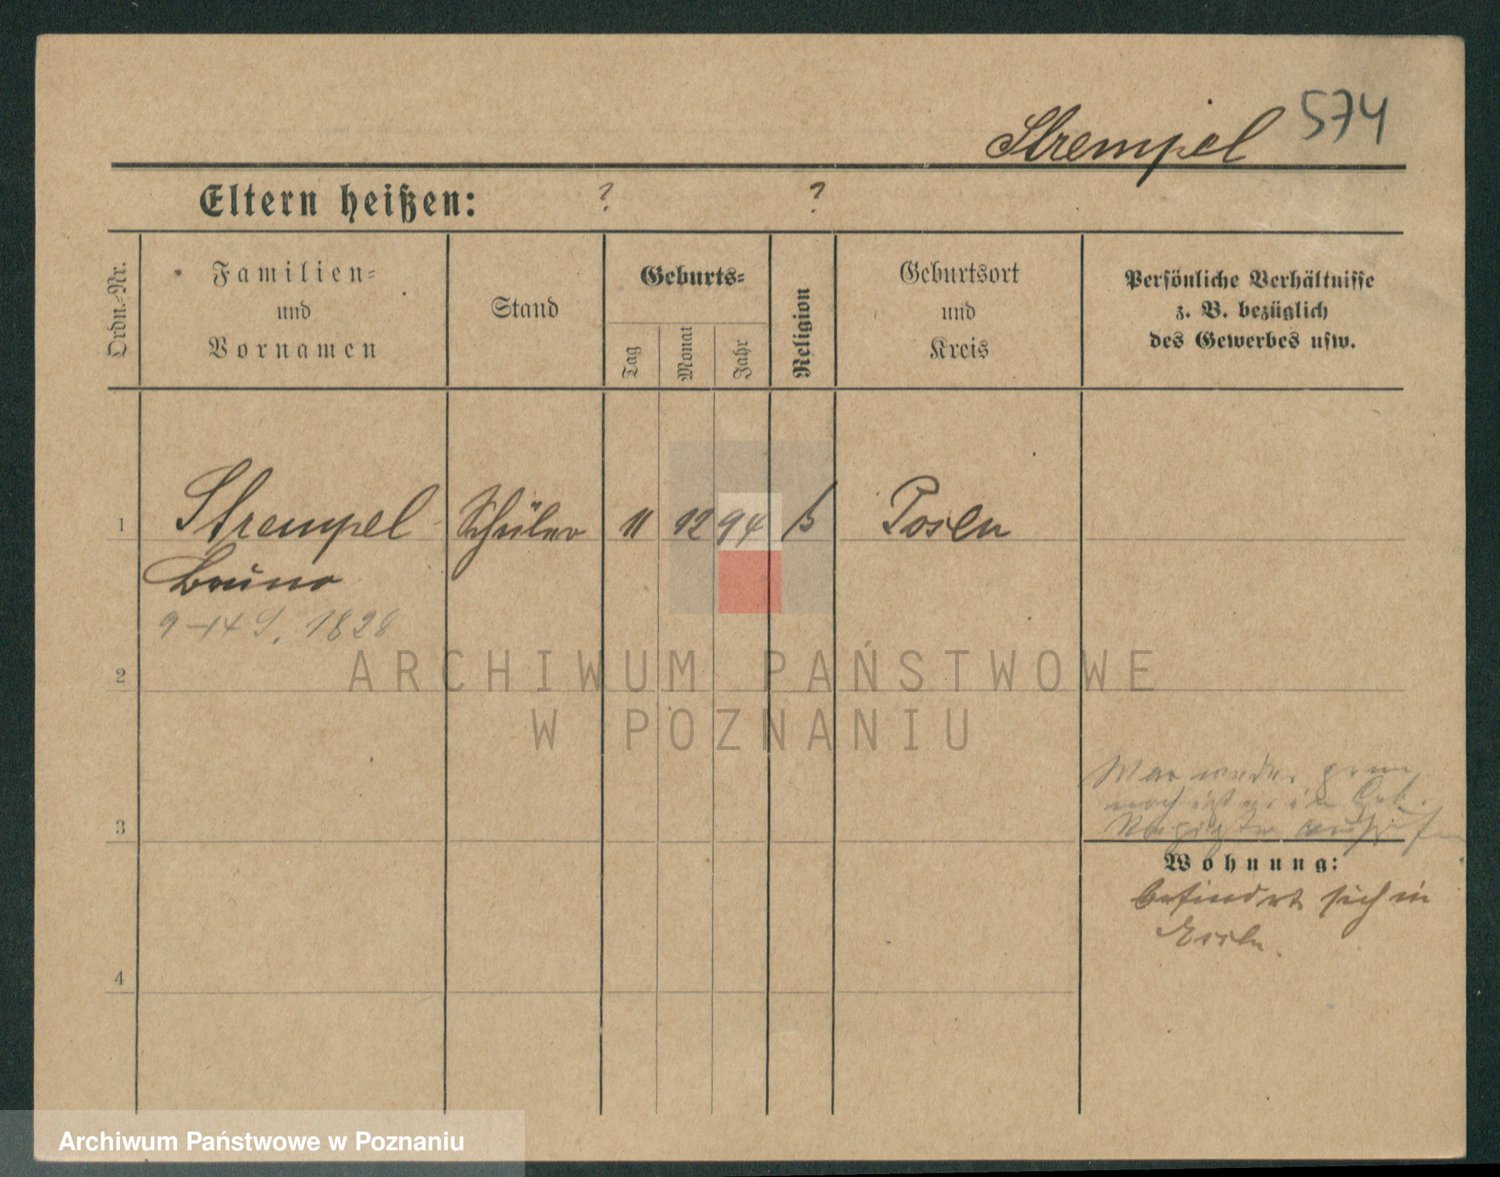 Strempel 574
Eltern heißen: ? ?
Ordn.-Nr.
Familien-
und
Vornamen
Stand
Geburts-
Tag
Monat
Jahr
Religion
Geburtsort
und
Kreis
Persönliche Verhältnisse
z. B. bezüglich
des Gewerbes usw.
1 Strempel Schüler 11 12 94 Posen
Bruno
9-14 S. 1828
2
ARCHIWUM PAŃSTWOWE
W POZNANIU
War weder
noch ist er im
3
Wohnung:
befindet sich in
4
Archiwum Państwowe w Poznaniu